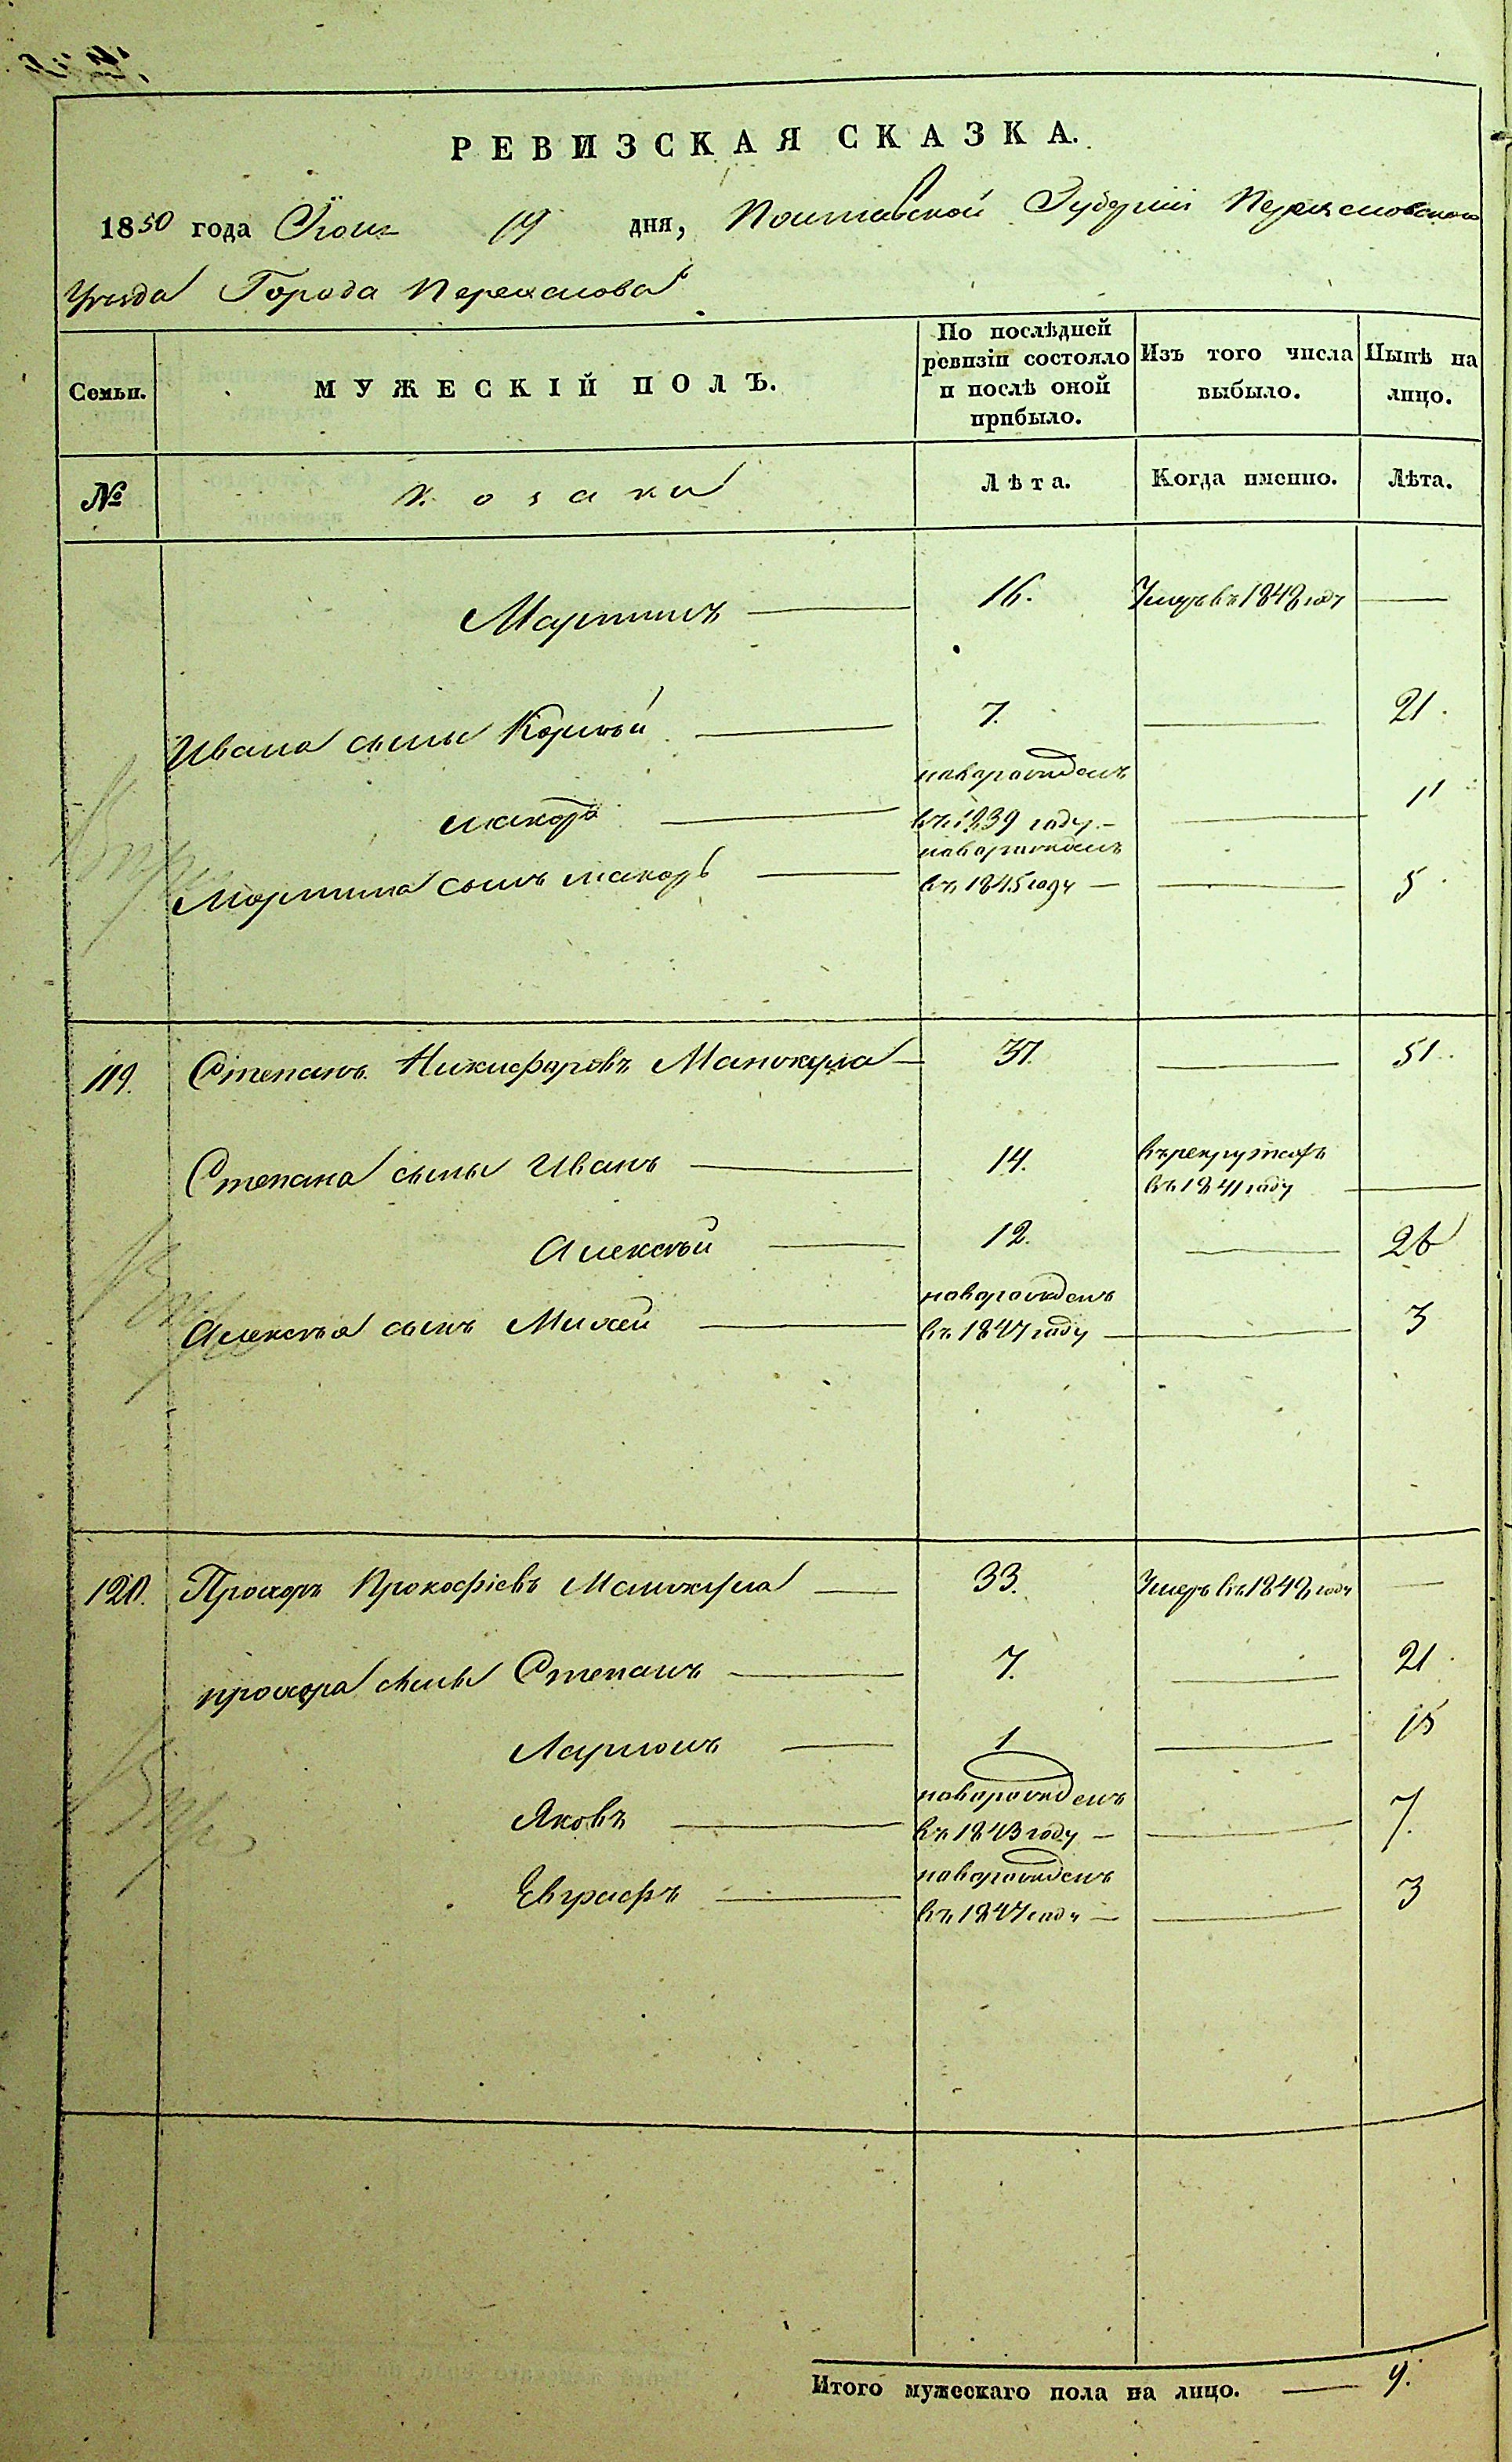 РЕВИЗСКАЯ СКАЗКА.
1850 года Іюня 19 дня, Полтавской Губерніи Переяславскаго
Уѣзда Города Переяслова
Семьи.
МУЖЕСКІЙ ПОЛЪ.
По послѣдней
ревизіи состояло
и послѣ оной
прибыло.
Изъ того числа
выбыло.
Нынѣ на
лицо.
№
Козаки
Лѣта.
Когда именно.
Лѣта.
Мартинъ 16. Умеръ въ 1848 году
Ивана сыны Корнѣй 7. 21.
новорожденъ
Макаръ въ 1839 году 11
новорожденъ
Мартина сынъ Макаръ въ 1845 году 5.
119. Степанъ Никифоровъ Манжура 37. 51.
въ рекрутахъ
Степана сыны Иванъ 14. въ 1841 году
Алексѣй 12. 26
новорожденъ
Алексѣя сынъ Михей въ 1847 году 3
120. Прохоръ Прокофіевъ Манжура 33. Умеръ въ 1848 году
Прохора сыны Степанъ 7. 21.
Ларионъ 1 15
новорожденъ
Яковъ въ 1843 году 7.
новорожденъ
Евграфъ въ 1847 году 3
Итого мужескаго пола на лицо. 9.